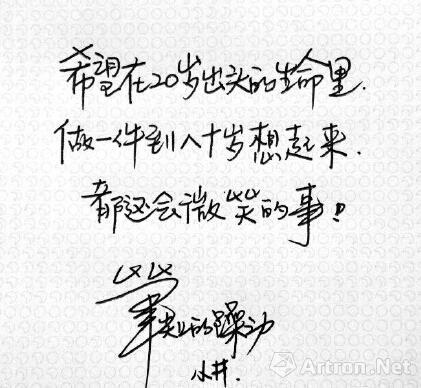 希望在20岁出头的生命里.
做一件到八十岁想起来.
都还会微笑的事!
的躁动
小井.
Artron.Net